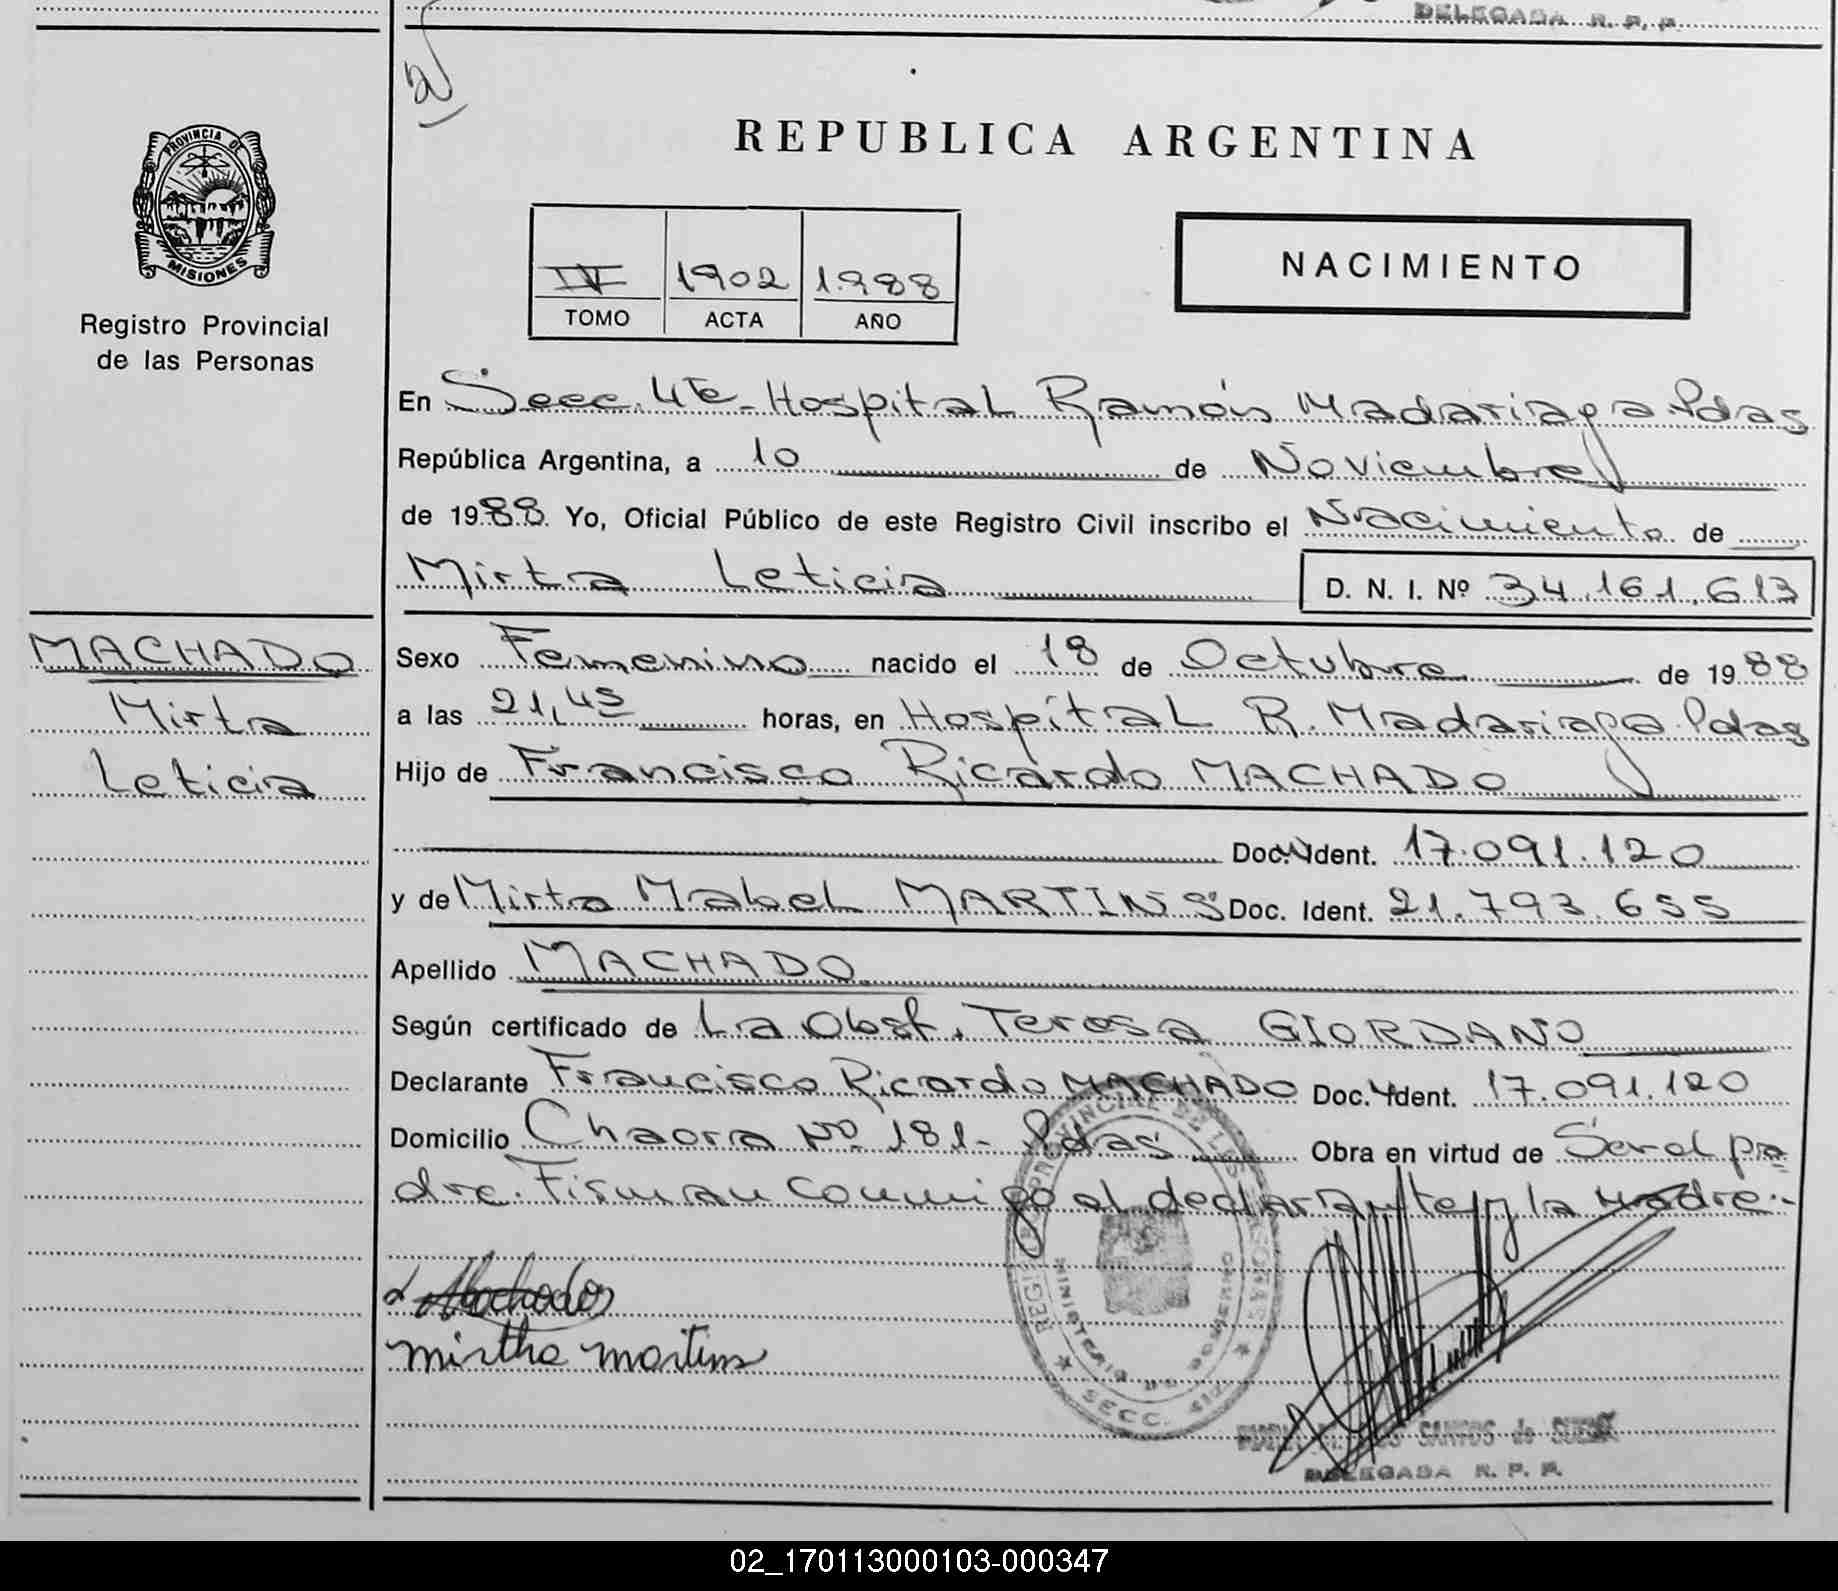 DELEGADA R. P. P.
REPUBLICA ARGENTINA
PROVINCIA DE
MISIONES
Registro Provincial
de las Personas
IV 1902 1988
TOMO ACTA AÑO
NACIMIENTO
En Secc. 4ta Hospital Ramón Madariaga Pdas
República Argentina, a 10 de Noviembre
de 1988. Yo, Oficial Público de este Registro Civil inscribo el Nacimiento de
Mirta Leticia D. N. I. Nº 34.161.613
MACHADO
Mirta
Leticia
Sexo Femenino nacido el 18 de Octubre de 1988
a las 21,45 horas, en Hospital R. Madariaga Pdas
Hijo de Francisco Ricardo MACHADO
Doc. Ident. 17.091.120
y de Mirta Mabel MARTINS Doc. Ident. 21.793.655
Apellido MACHADO
Según certificado de La Obst. Teresa GIORDANO
Declarante Francisco Ricardo MACHADO Doc. Ident. 17.091.120
Domicilio Chacra Nº 181- Pdas Obra en virtud de Ser el pa
dre. Firman conmigo el declarante y la madre.-
Machado
mirtha martins
REGISTRO PROVINCIAL DE LAS PERSONAS
MINISTERIO DE GOBIERNO
SECC. 4ta
SANTOS de
DELEGADA R. P. P.
02_170113000103-000347